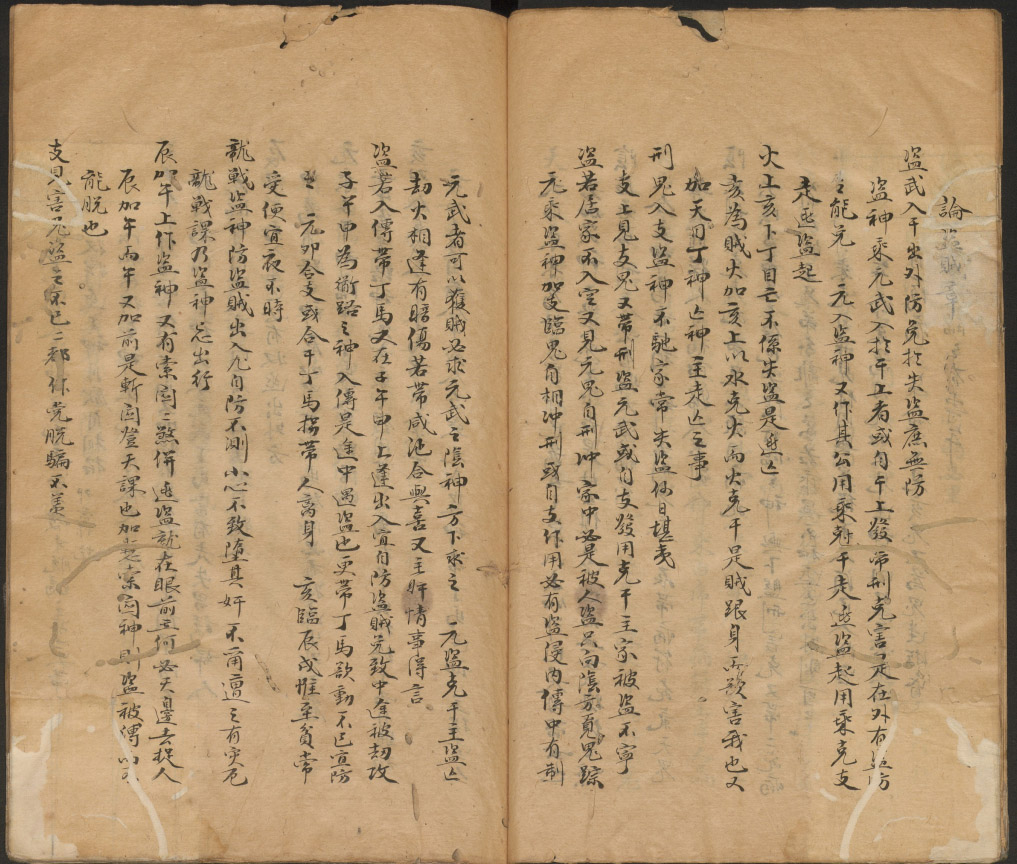 論盜賊章
盜武入干出外防免扵失盜庶無防
盜神乘元武入扵干上者或自干上發帶刑克害是在外有盜防
之能元　元入盜神又作其公用乘刑干走盜起用乘克支
走逃盜起
火上亥下丁自亡不係失盜是逃亡
亥為賊火加亥上以水克火而火克干是賊跟身欲害我也又
加天目丁神亡神主走亡之事
刑鬼入支盜神來馳家常失盜仍日堪夷
支上見支鬼又帶刑盜元武或自支發用克干主家被盜不寧
盜若居家不入空又見元鬼自刑冲家中必是被人盜只向陰方覓鬼踪
元乘盜神加支臨鬼自相冲刑或自支作用必有盜侵內傳中有制
元武者可以獲賊必求元武之陰神方下求之　元盜克干主盜亡
劫火相逢有暗傷若帶咸池合與喜又主奸情事得言
盜若入傳帶丁馬又在子午申上逢出入宜自防盜賊元致中途被劫攻
子午申為衢路之神入傳是途中遇盜也更帶丁馬欲動不已宜防
之　元卯合支或合干丁馬拐帶人离身　亥臨辰戌惟至貧常
受便宜夜不時
龍戰盜神防盜賊出入凡自防不測小心不致墮其奸不甫遭之有灾厄
龍戰課乃盜神忌出行
辰加午上作盜神又有索関二煞併逃盜就在眼前立何必天邊去捉人
辰加午丙午又加前是斬関登天課也加索関神則盜被傳以
能脫也
支見害元盜之不已二都作党脫騙不美